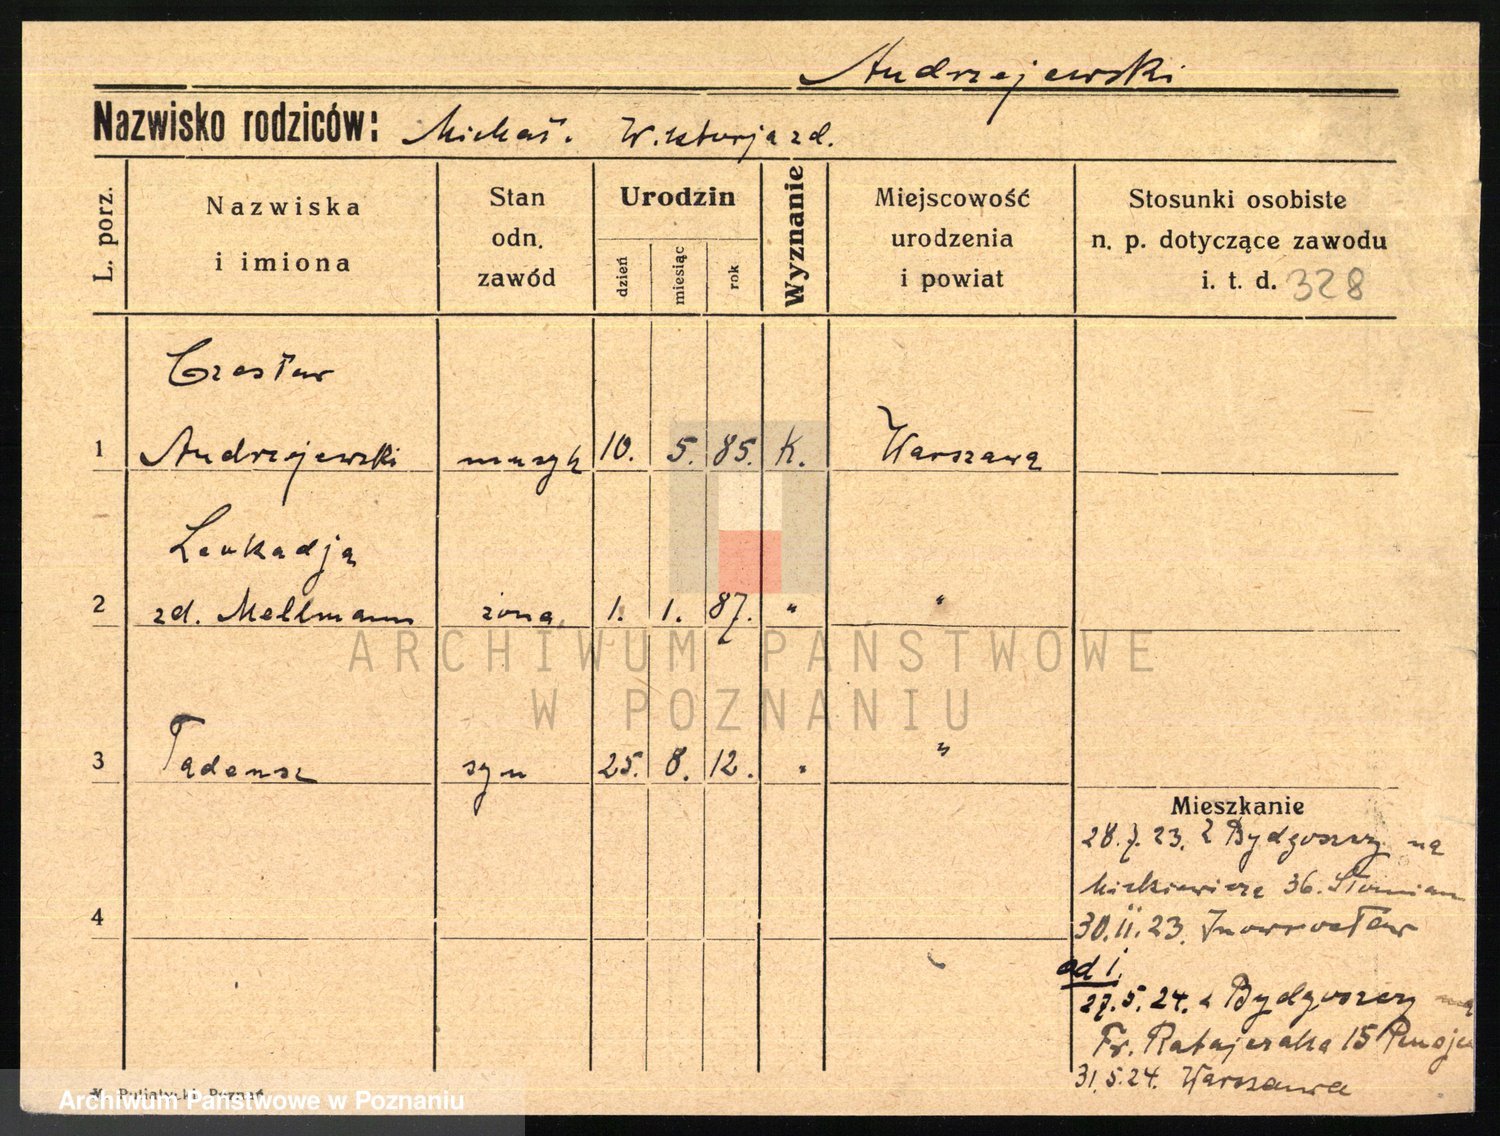 Andrzejewski
Nazwisko rodziców: Michał. Wiktorja zd.
L. porz.
Nazwiska
i imiona
Stan
odn.
zawód
Urodzin
dzień
miesiąc
rok
Wyznanie
Miejscowość
urodzenia
i powiat
Stosunki osobiste
n. p. dotyczące zawodu
i. t. d. 328
Czesław
1 Andrzejewski muzyk 10. 5. 85. K. Warszawa
Leokadja
2 zd. Mellmann żona 1. 1. 87. " "
3 Tadeusz syn 25. 8. 12. " "
4
Mieszkanie
28.7.23. z Bydgoszczy na
Mickiewicza 36.
30.11.23. Inowrocław
ad 1.
27.5.24. z Bydgoszczy na
Fr. Ratajczaka 15
31.5.24. Warszawa
ARCHIWUM PAŃSTWOWE
W POZNANIU
Putiatycki Poznań
Archiwum Państwowe w Poznaniu